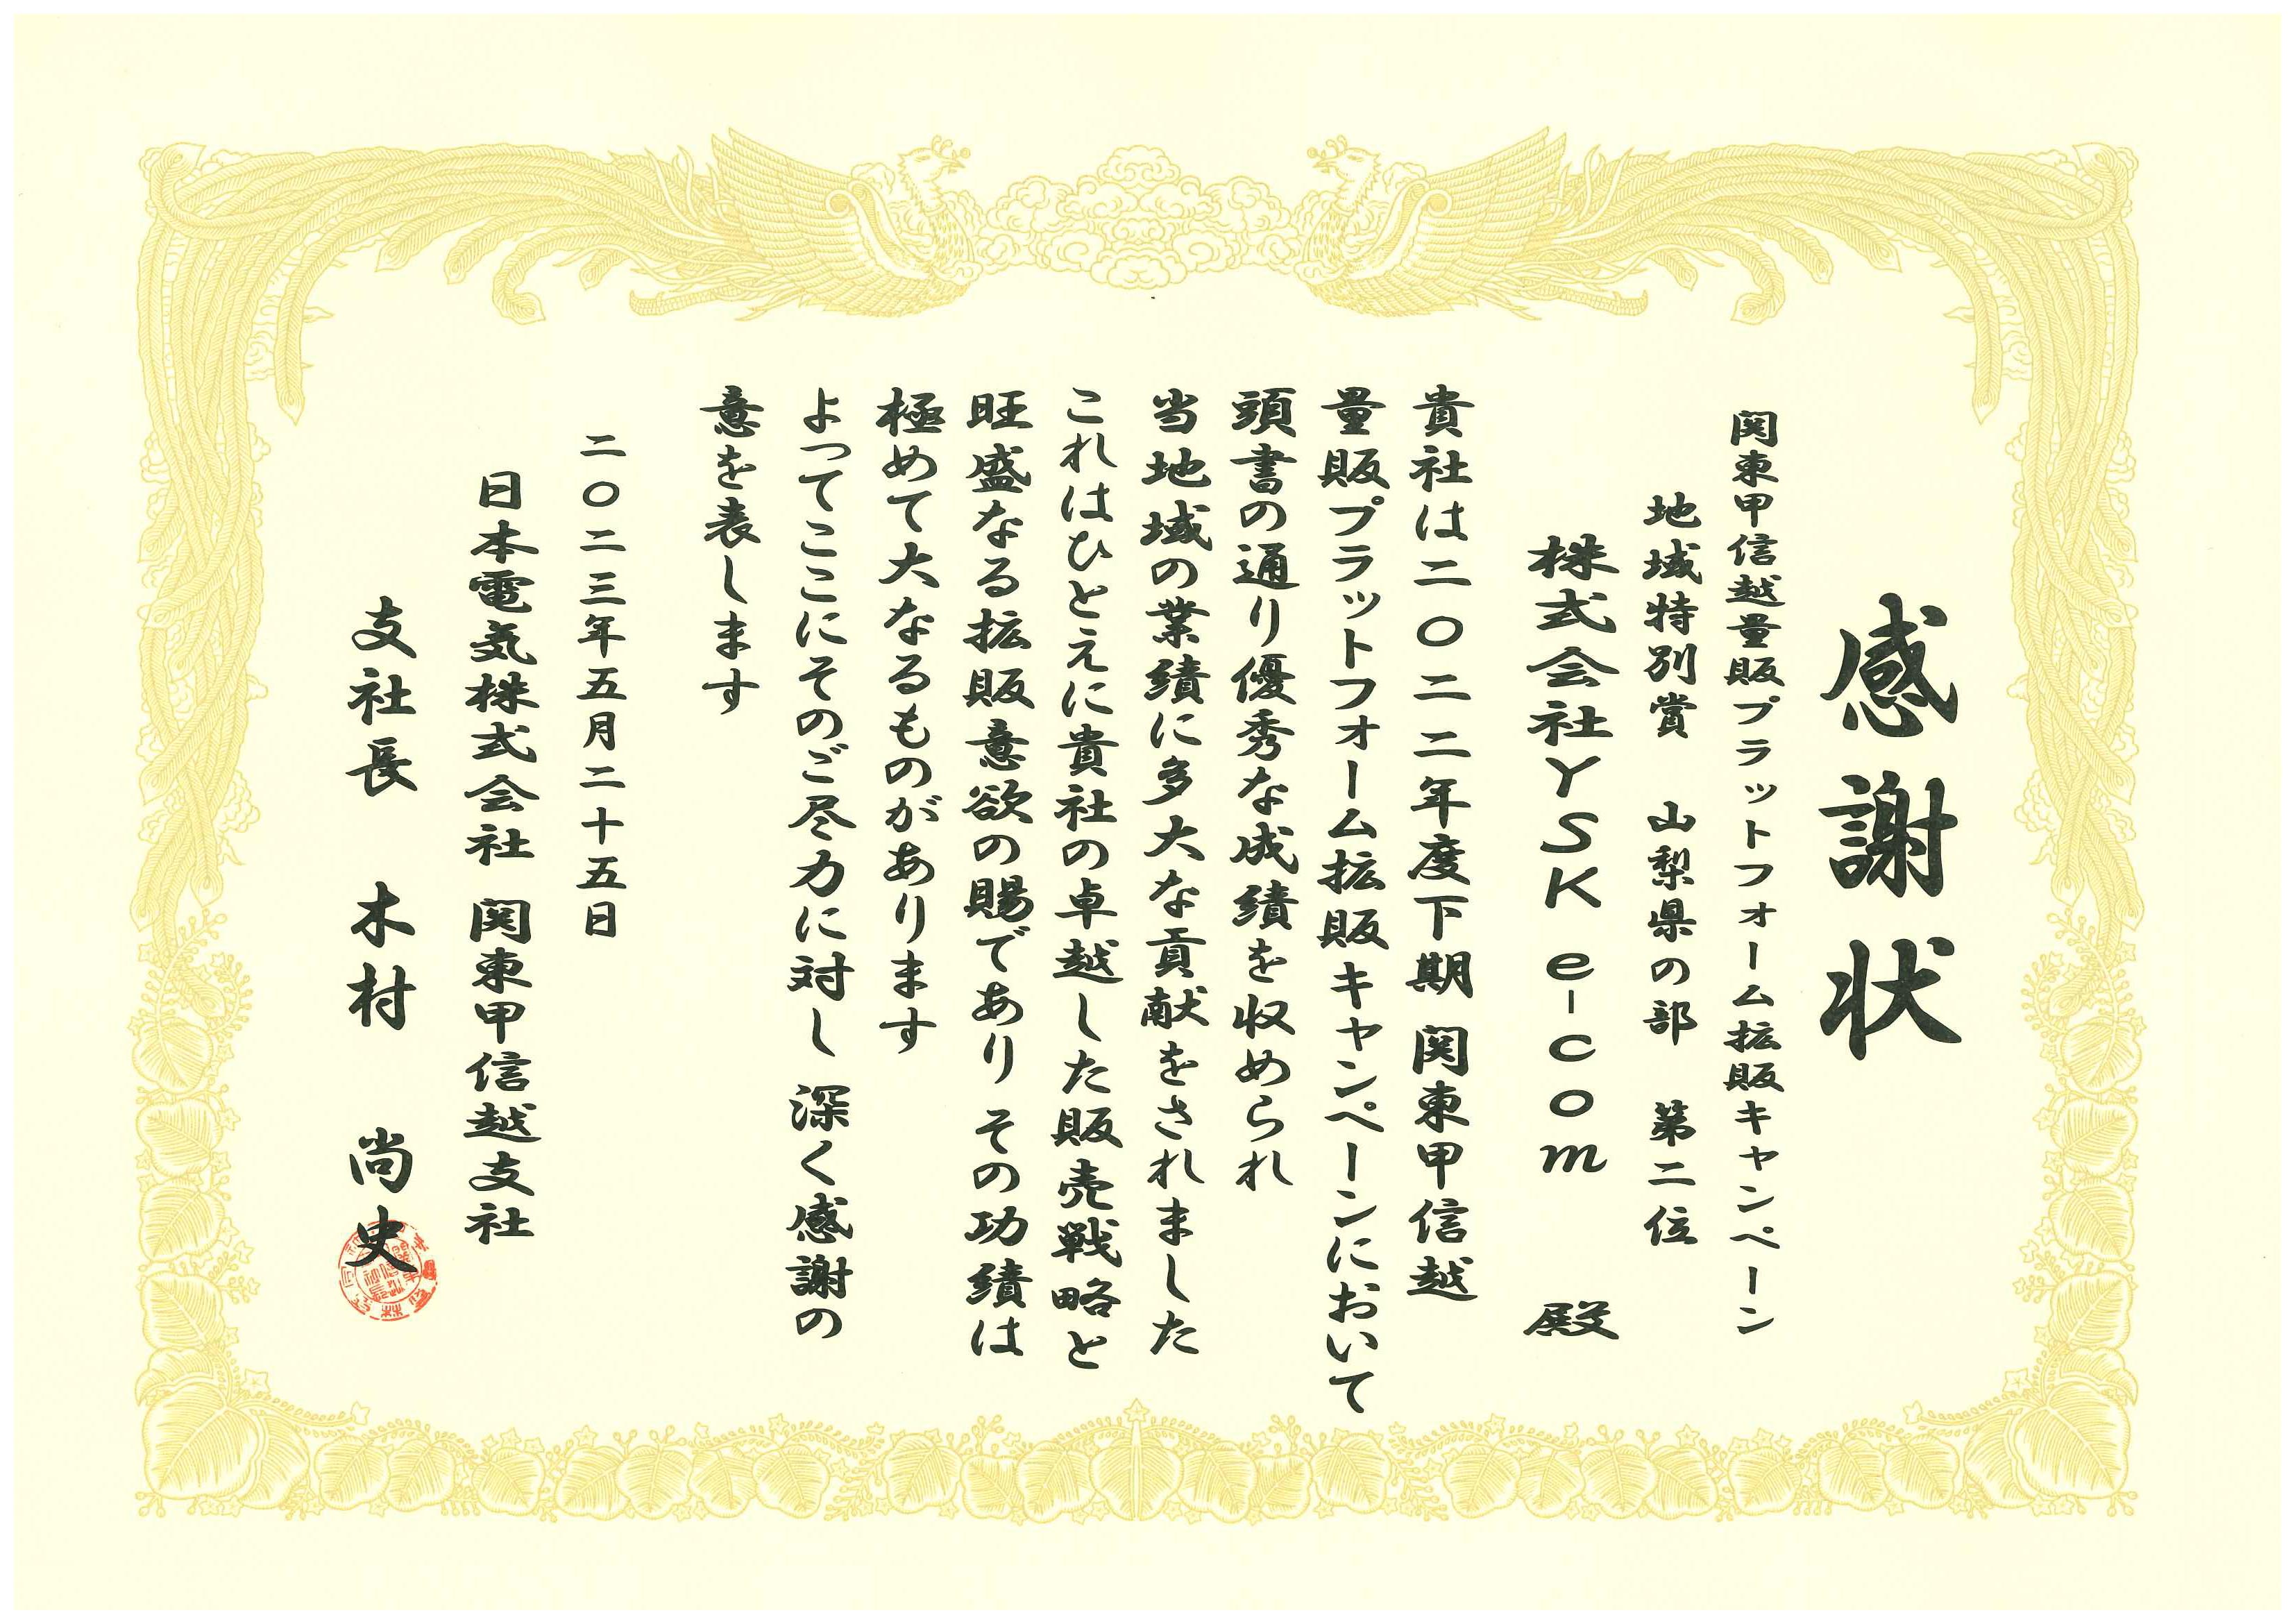 感謝状
関東甲信越量販プラットフォーム拡販キャンペーン
地域特別賞 山梨県の部 第二位
株式会社YSK e-com 殿
貴社は二〇二二年度下期 関東甲信越
量販プラットフォーム拡販キャンペーンにおいて
頭書の通り優秀な成績を収められ
当地域の業績に多大な貢献をされました
これはひとえに貴社の卓越した販売戦略と
旺盛なる拡販意欲の賜であり その功績は
極めて大なるものがあります
よってここにそのご尽力に対し 深く感謝の
意を表します
二〇二三年五月二十五日
日本電気株式会社 関東甲信越支社
支社長 木村 尚史